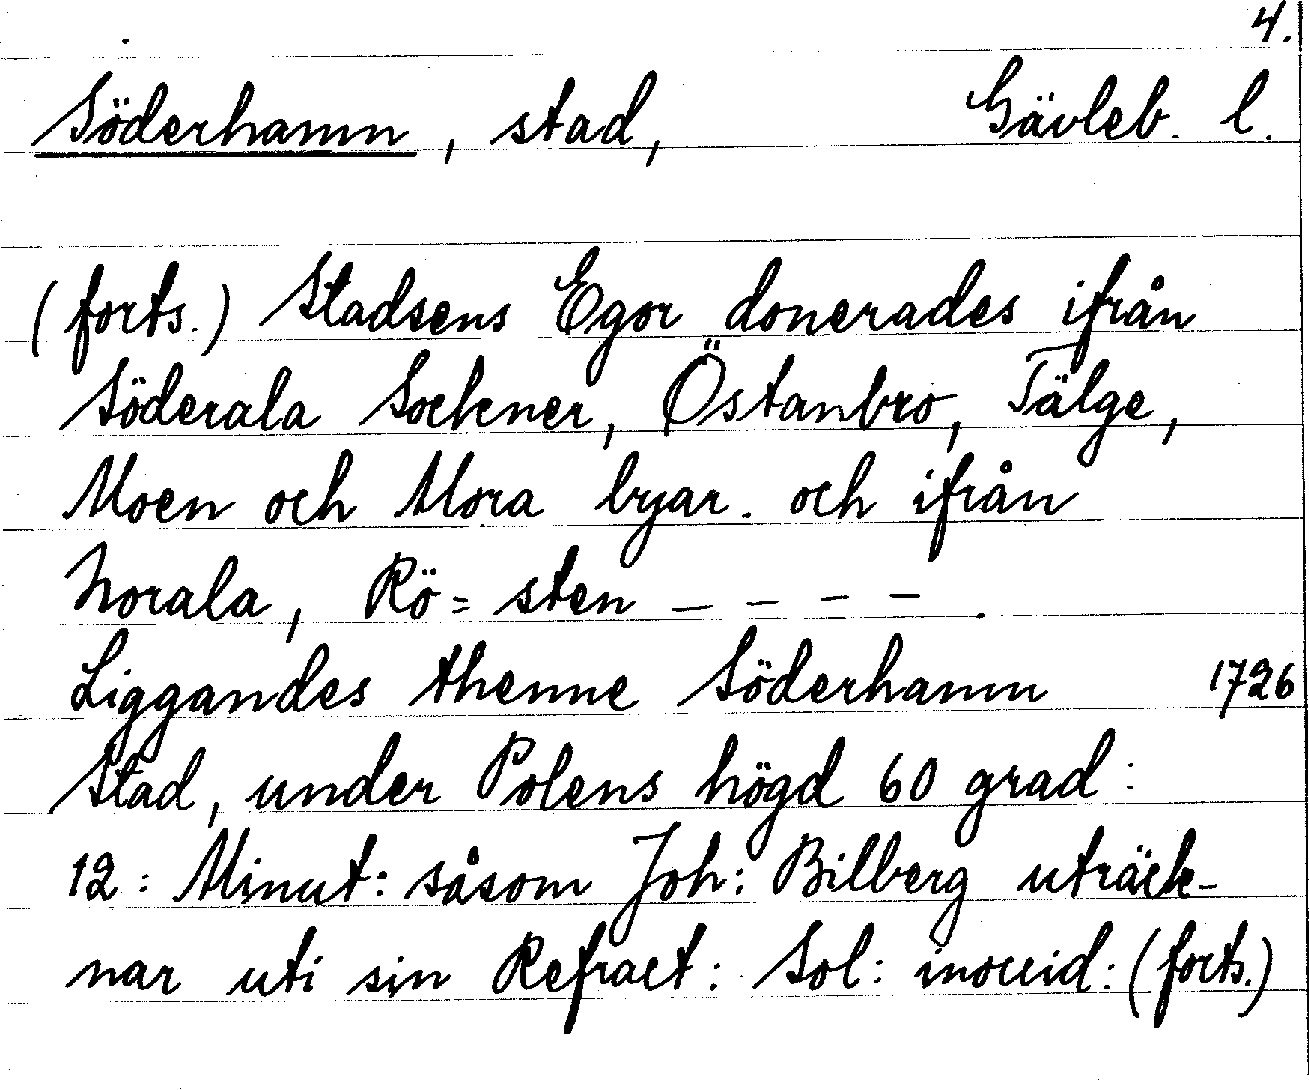 4.
Söderhamn, stad, Gävleb. l.
(forts.) Stadsens Egor donerades ifrån
Söderala Sockner, Östanbro, Tälge,
Moen och Mora byar. och ifrån
Norala, Rö= sten – – – – .
Liggandes thenne Söderhamn 1726
Stad, under Polens högd 60 grad:
12: Minut: såsom Joh: Bilberg uträck-
nar uti sin Refract: Sol: inoccid: (forts.)